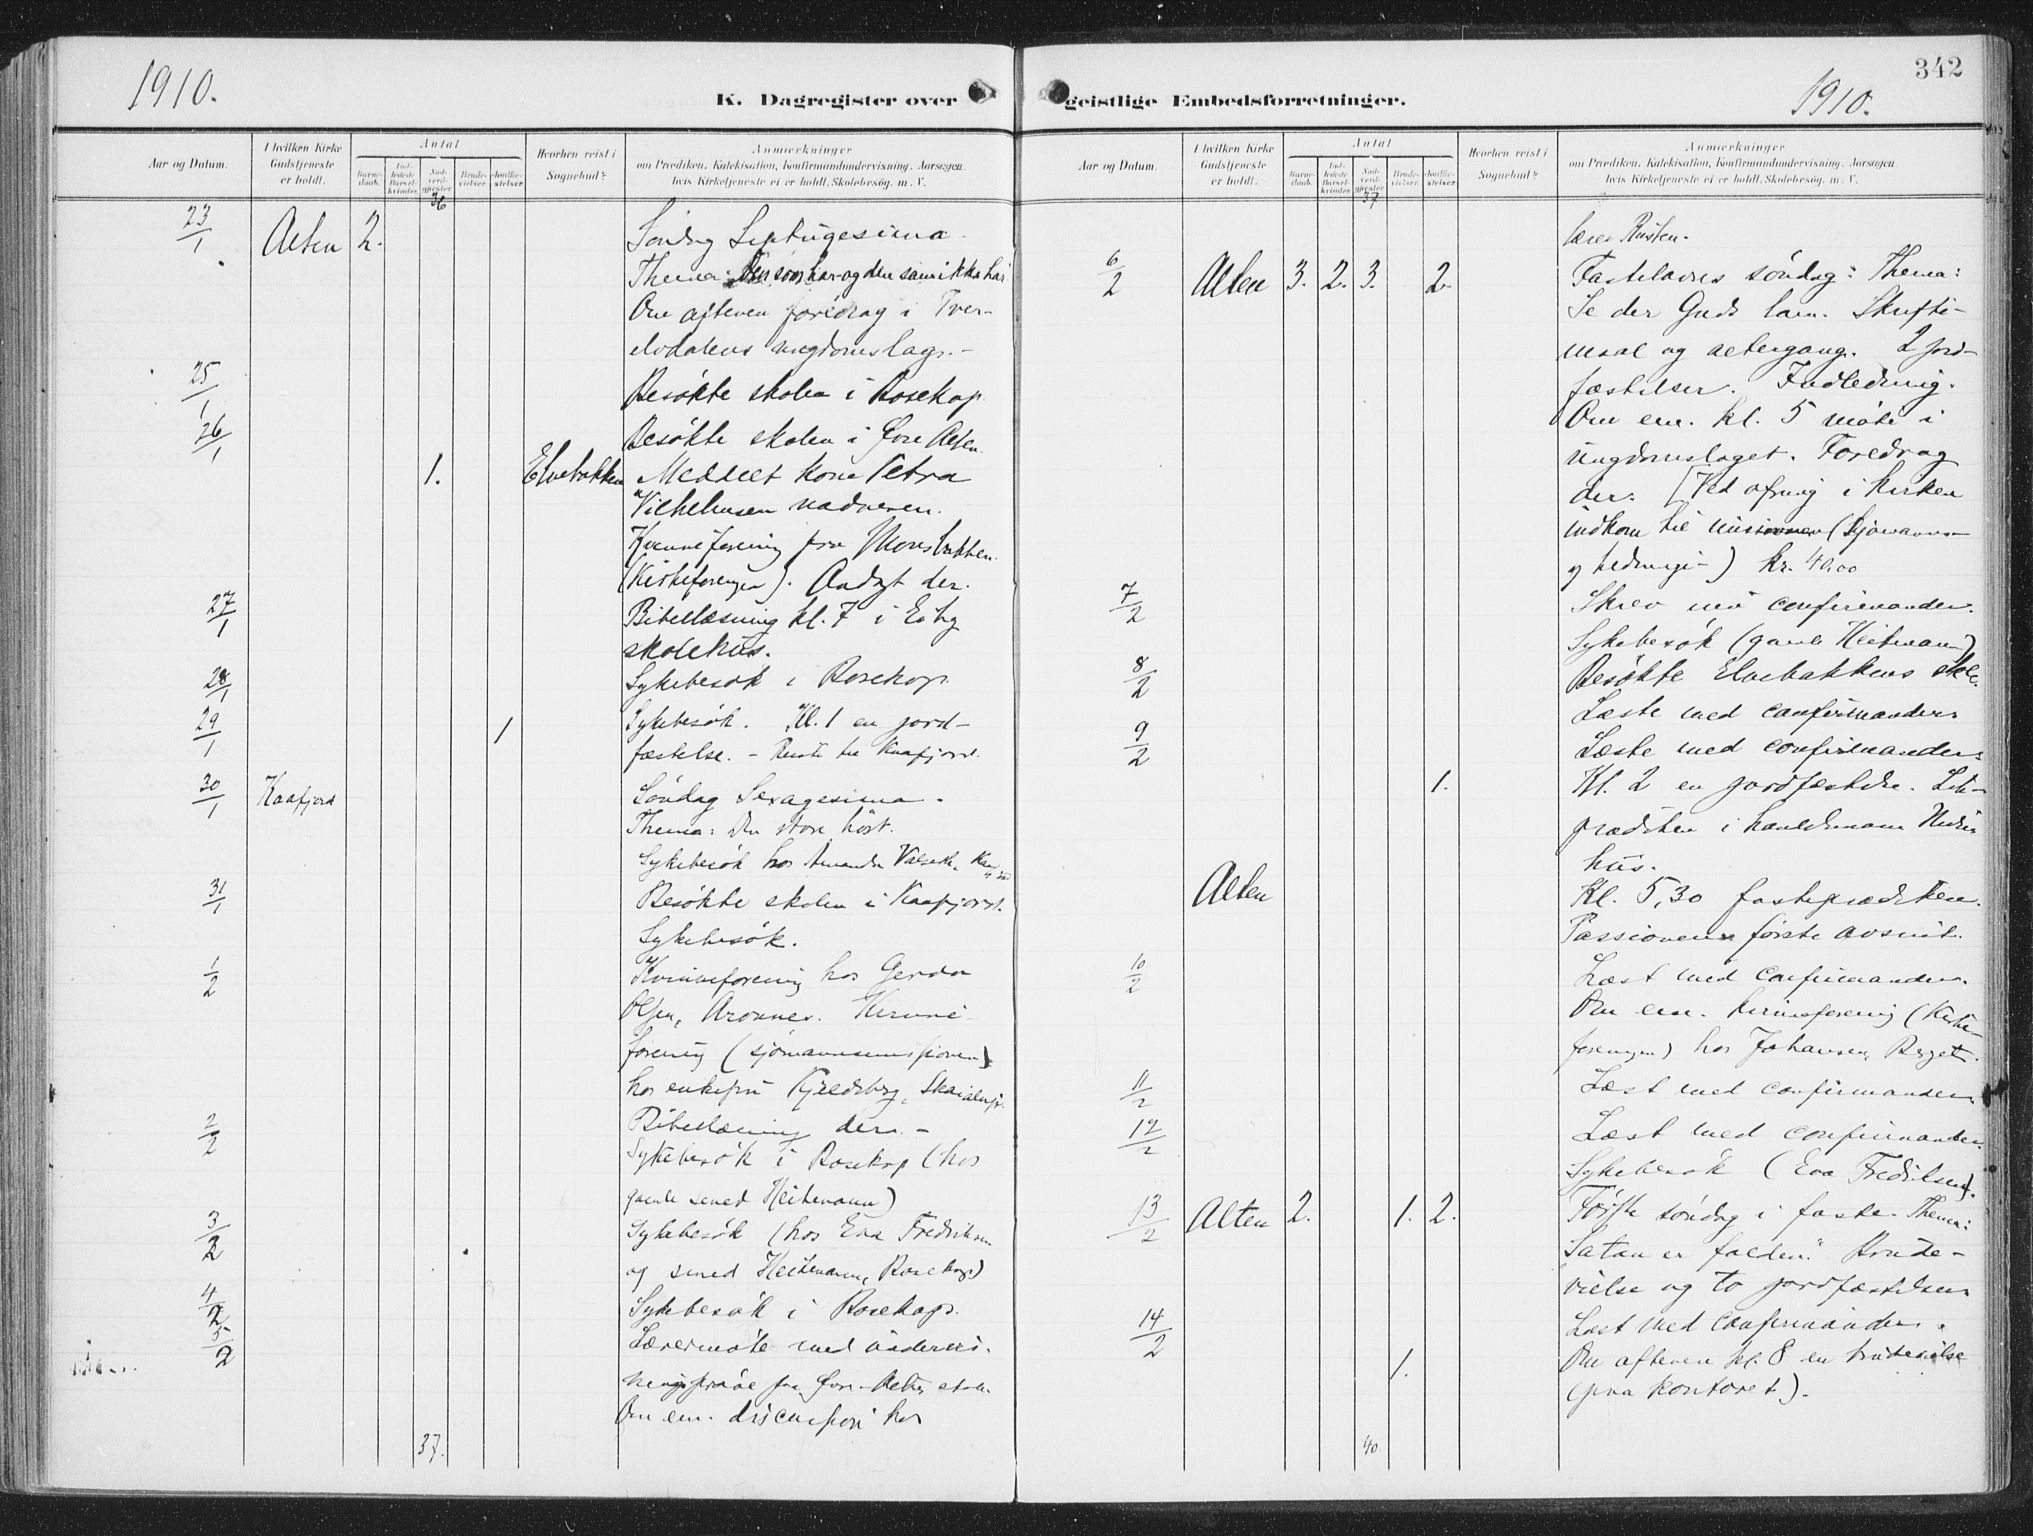 1910.
K. Dagregister over
Aar og Datum.
I hvilken Kirke Gudstjeneste er holdt.
Antal
Barnedaab.
Indledede Barselkvinder.
Nadverdgjester.
Brudevielser.
Jordfæstelser.
Hvorhen reist i Sognebud?
Anmærkninger
om Prædiken, Katekisation, Konfirmandundervisning, Aarsagen,
hvis Kirketjeneste ei er holdt, Skolebesøg. m. V.
36
23/1 Alten 2. Søndag Septugesima.
Thema: Den som har og den som ikke har
Om aftenen foredrag i Tver-
elvdalens ungdomslag. -
25/1 Besøkte skolen i Bosekop.
26/1 Besøkte skolen i Øvre Alten.
1. Elvebakken Meddelt kone Petra
Vilhelmsen nadveren.
Kvinneforening paa
(Kirkeforengen). Andagt der.
27/1 Bibellæsning kl. 7 i Elvbg
skolehus.
28/1 Sykebesøk i Bosekop.
29/1 1 Sykebesøk. Kl. 1 en jord-
fæstelse. - Reiste til Kaafjord.
30/1 Kaafjord Søndag Sexagesima.
Thema: Den store høst.
Sykebesøk hos Amanda
31/1 Besøkte skolen i Kaafjord.
Sykebesøk.
1/2 Kvinneforening hos Gerda
Olsen, Aronnes. Kvinne-
forening (sjømannsmissionen)
hos enkefru Kjeldsberg,
Bibellæsning der. -
2/2 Sykebesøk i Bosekop (hos
gamle smed Heitmann)
3/2 Sykebesøk (hos Eva Fredriksen
og smed Heitmann, Bosekop)
4/2 Sykebesøk i Bosekop.
5/2 Lærermøte med undervis-
ningsprøve paa Øvre-Alten skole.
Om em. discussion hos
37.
342
1910.
geistlige Embedsforretninger.
Aar og Datum.
I hvilken Kirke Gudstjeneste er holdt.
Antal
Barnedaab.
Indledede Barselkvinder.
Nadverdgjester.
Brudevielser.
Jordfæstelser.
Hvorhen reist i Sognebud?
Anmærkninger
om Prædiken, Katekisation, Konfirmandundervisning, Aarsagen,
hvis Kirketjeneste ei er holdt, Skolebesøg. m. V.
37
lærer Rusten.
6/2 Alten 3. 2. 3. 2. Fastelavns søndag: Thema:
Se der Guds lam. Skrifte-
maal og altergang. 2 jord-
fæstelser. Indledning.
Om em. kl. 5 møte i
ungdomslaget. Foredrag
der. [Ved ofring i kirken
indkom til missionen (Sjømanns-
og hedninge-) kr. 40.00
7/2 Skrev inn confirmander.
Sykebesøk (gamle Heitmann)
8/2 Besøkte Elvebakkens skole.
Læste med confirmander
9/2 Læste med confirmander
1. Kl. 2 en jordfæstelse. Lik-
prædiken i
hus.
Alten Kl. 5,30 fasteprædiken.
Passionens første avsnit.
10/2 Læst med confirmander.
Om em. kvinneforening (Kirke-
forengen) hos Johansen, Berget.
11/2 Læst med confirmander
12/2 Læst med confirmander
Sykebesøk (Eva Fredriksen).
13/2 Alten 2. 1. 2. Første søndag i faste. Thema:
"Satan er falden." Brude-
vielse og to jordfæstelser
14/2 Læst med confirmander.
1. Om aftenen kl. 8 en brudevielse
(paa kontoret).
40.